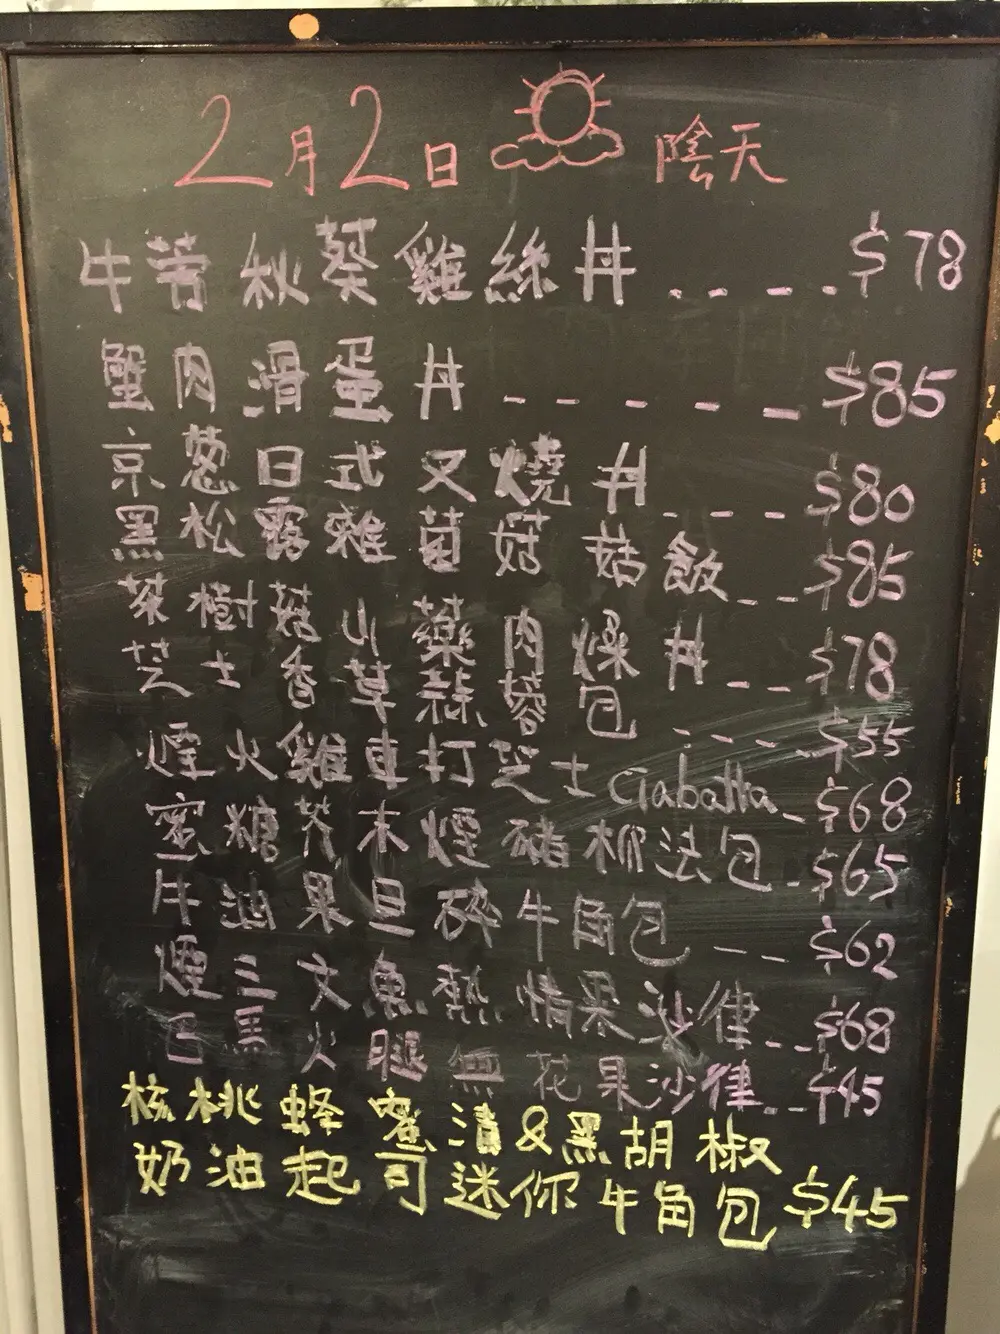 2月2日 陰天
牛蒡秋葵雞絲丼 - - - - $78
蟹肉滑蛋丼 - - - - - $85
京葱日式叉燒丼 - - - - $80
黑松露雜菌菇菇飯 - - $85
茶樹菇山藥肉燥丼 - - $78
芝士香草蒜蓉包 - - - - $55
煙火雞車打芝士Ciabatta - $68
蜜糖芥末煙豬柳法包 - $65
牛油果旦碎牛角包 - - - $62
煙三文魚熱情果沙律 - - $68
巴馬火腿無花果沙律 - - $45
核桃蜂蜜漬&黑胡椒
奶油起司迷你牛角包 $45